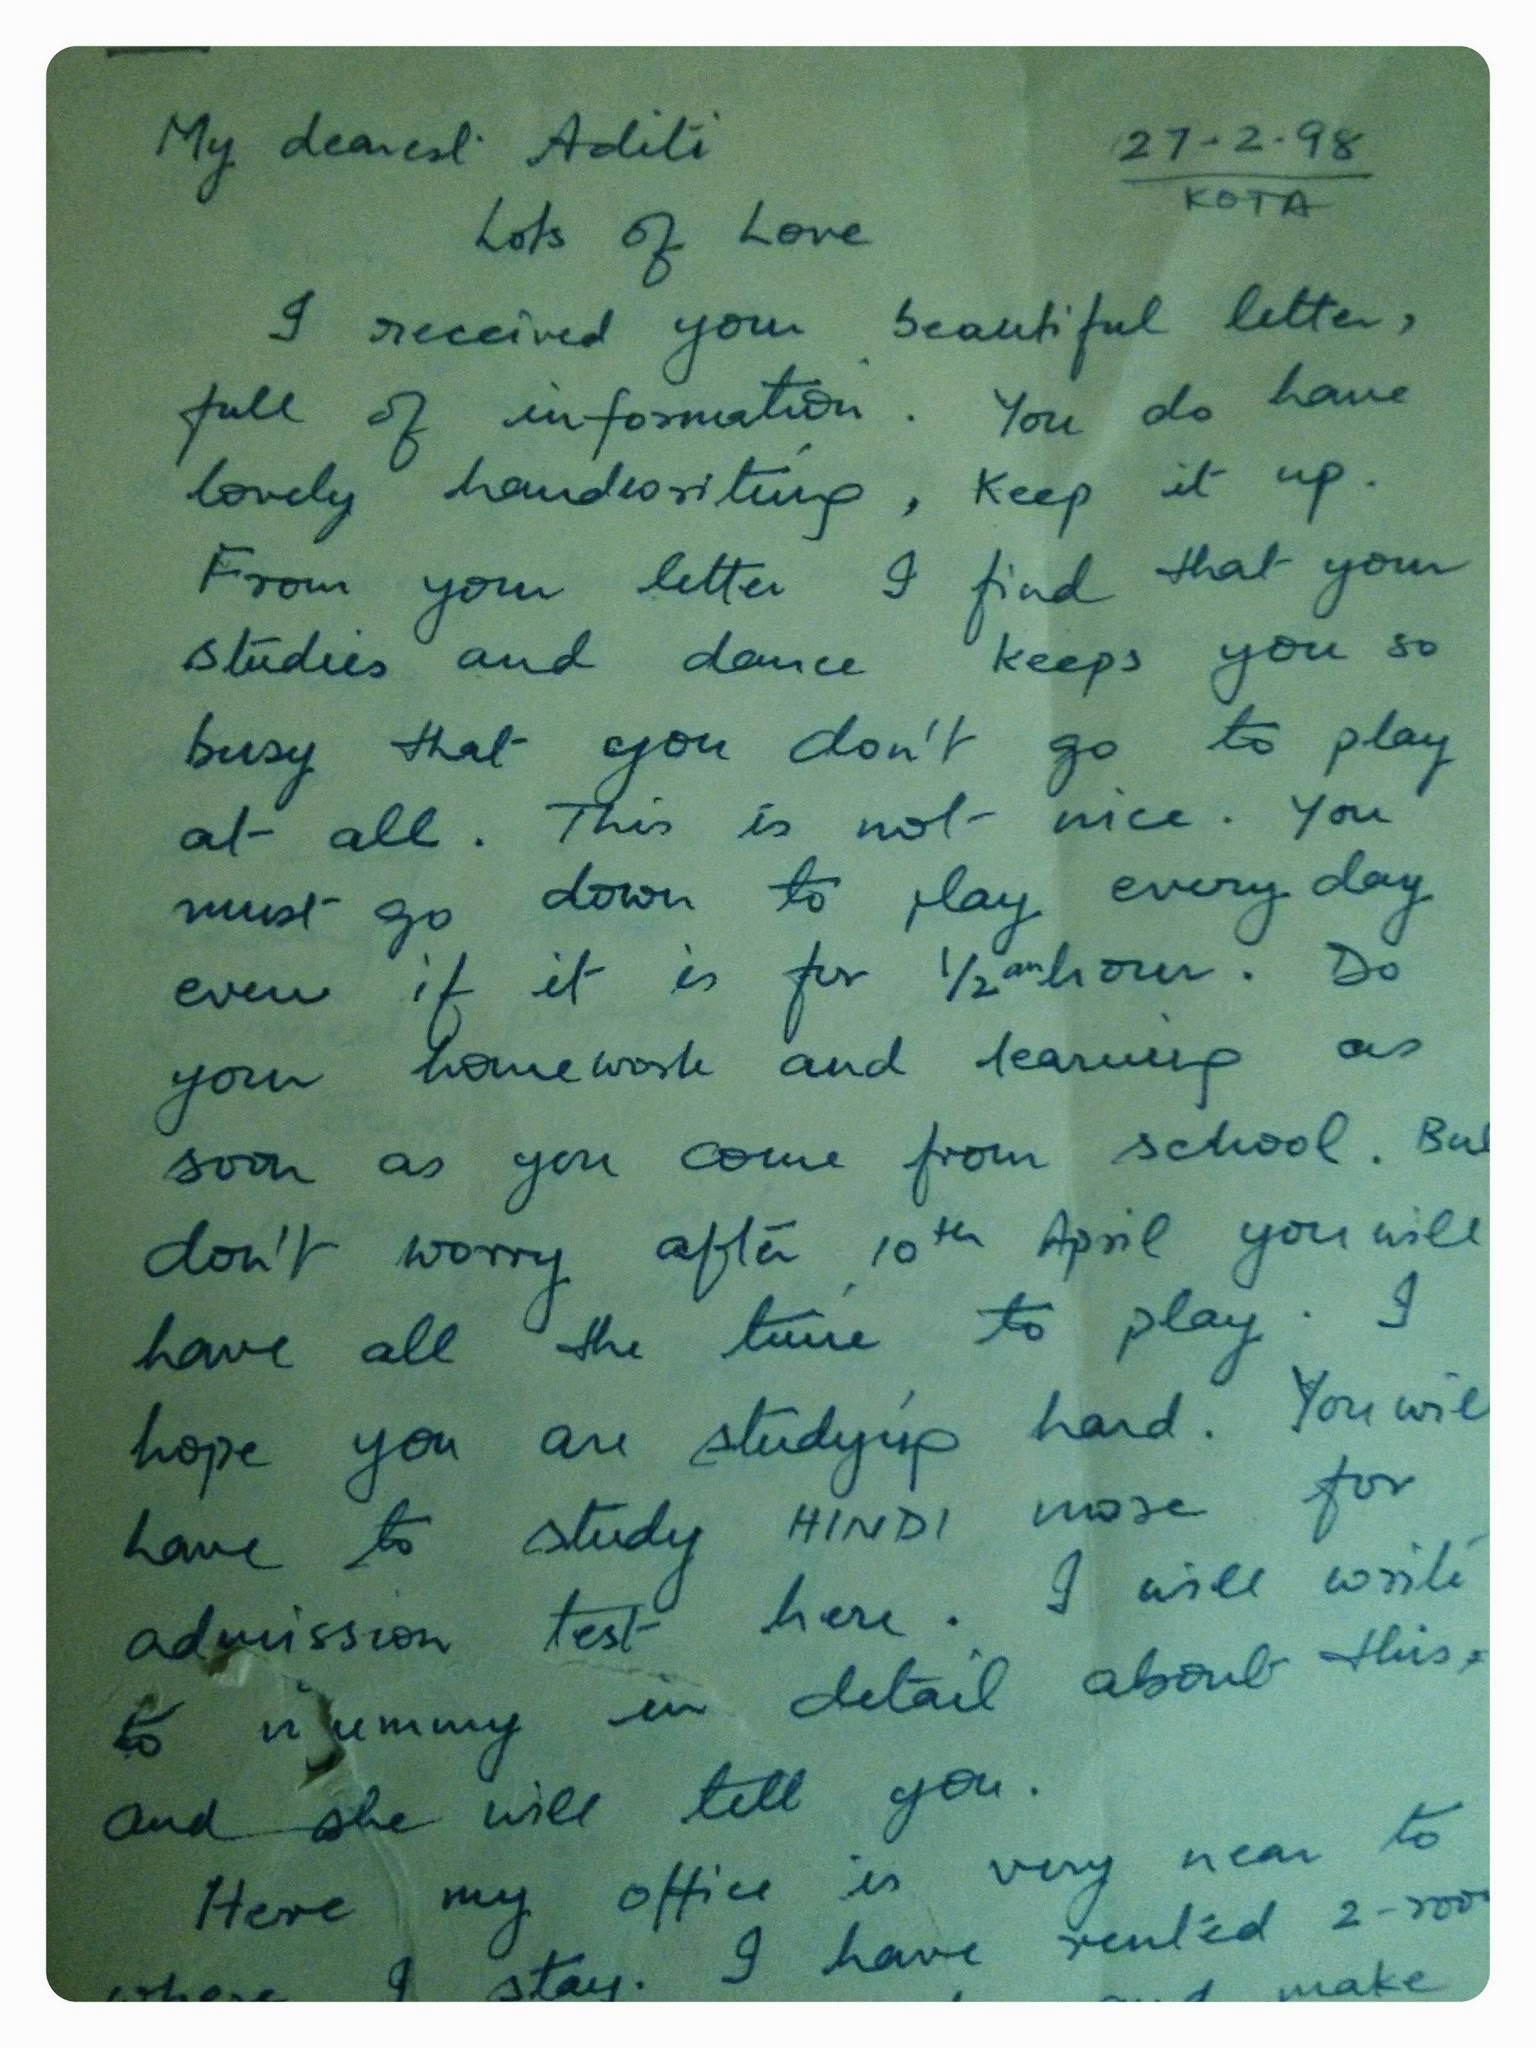 My dearest Aditi
27-2-98
KOTA
Lots of Love
I received your beautiful letter,
full of information. You do have
lovely handwriting, keep it up.
From your letter I find that your
studies and dance keeps you so
busy that you don't go to play
at all. This is not nice. You
must go down to play every day
even if it is for 1/2 an hour. Do
your homework and learning as
soon as you come from school. But
don't worry after 10th April you will
have all the time to play. I
hope you are studying hard. You will
have to study HINDI more for
admission test here. I will write
to mummy in detail about this.
and she will tell you.
Here my office is very near to
where I stay. I have rented 2-room
and make